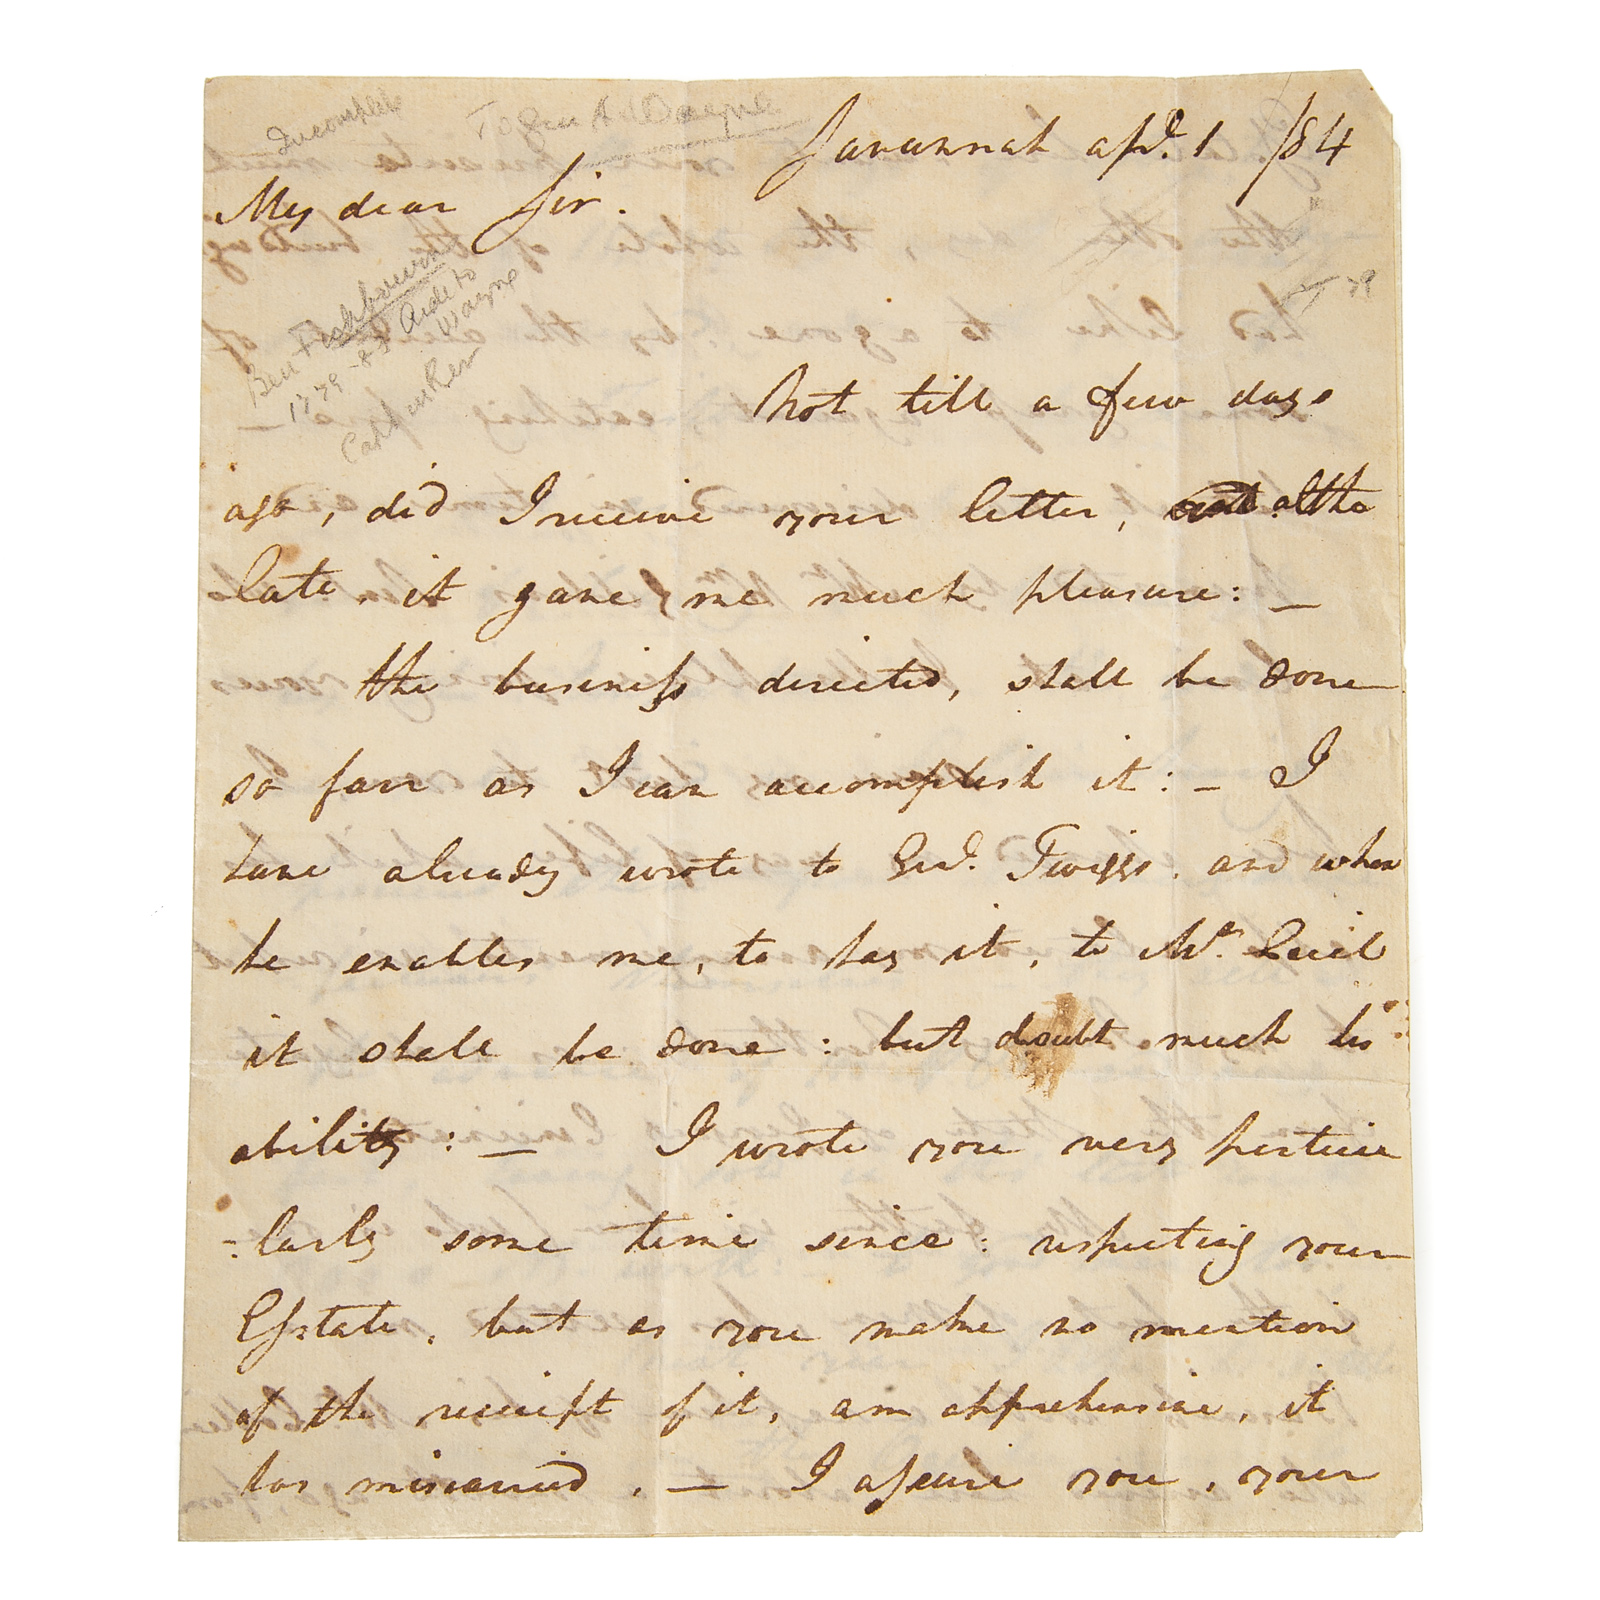 Incomplete
To Gen A Wayne
Savannah apl. 1 /84
My dear Sir.
Ben Fishbourn
1779-83 Aide to
Wayne
Capt in Rev
Not till a few days
ago, did I receive your letter, altho
late, it gave me much pleasure: —
the business directed, shall be done
so farr as I can accomplish it: — I
have already wrote to Genl. Twiggs. and when
he enables me, to pay it, to Mr.
it shall be done: but doubt much his
ability: — I wrote you very perticu
-larly some time since: respecting your
Esstate, but as you make no mention
of the receipt of it, am apprehensive, it
has miscarried, — I assure you, your